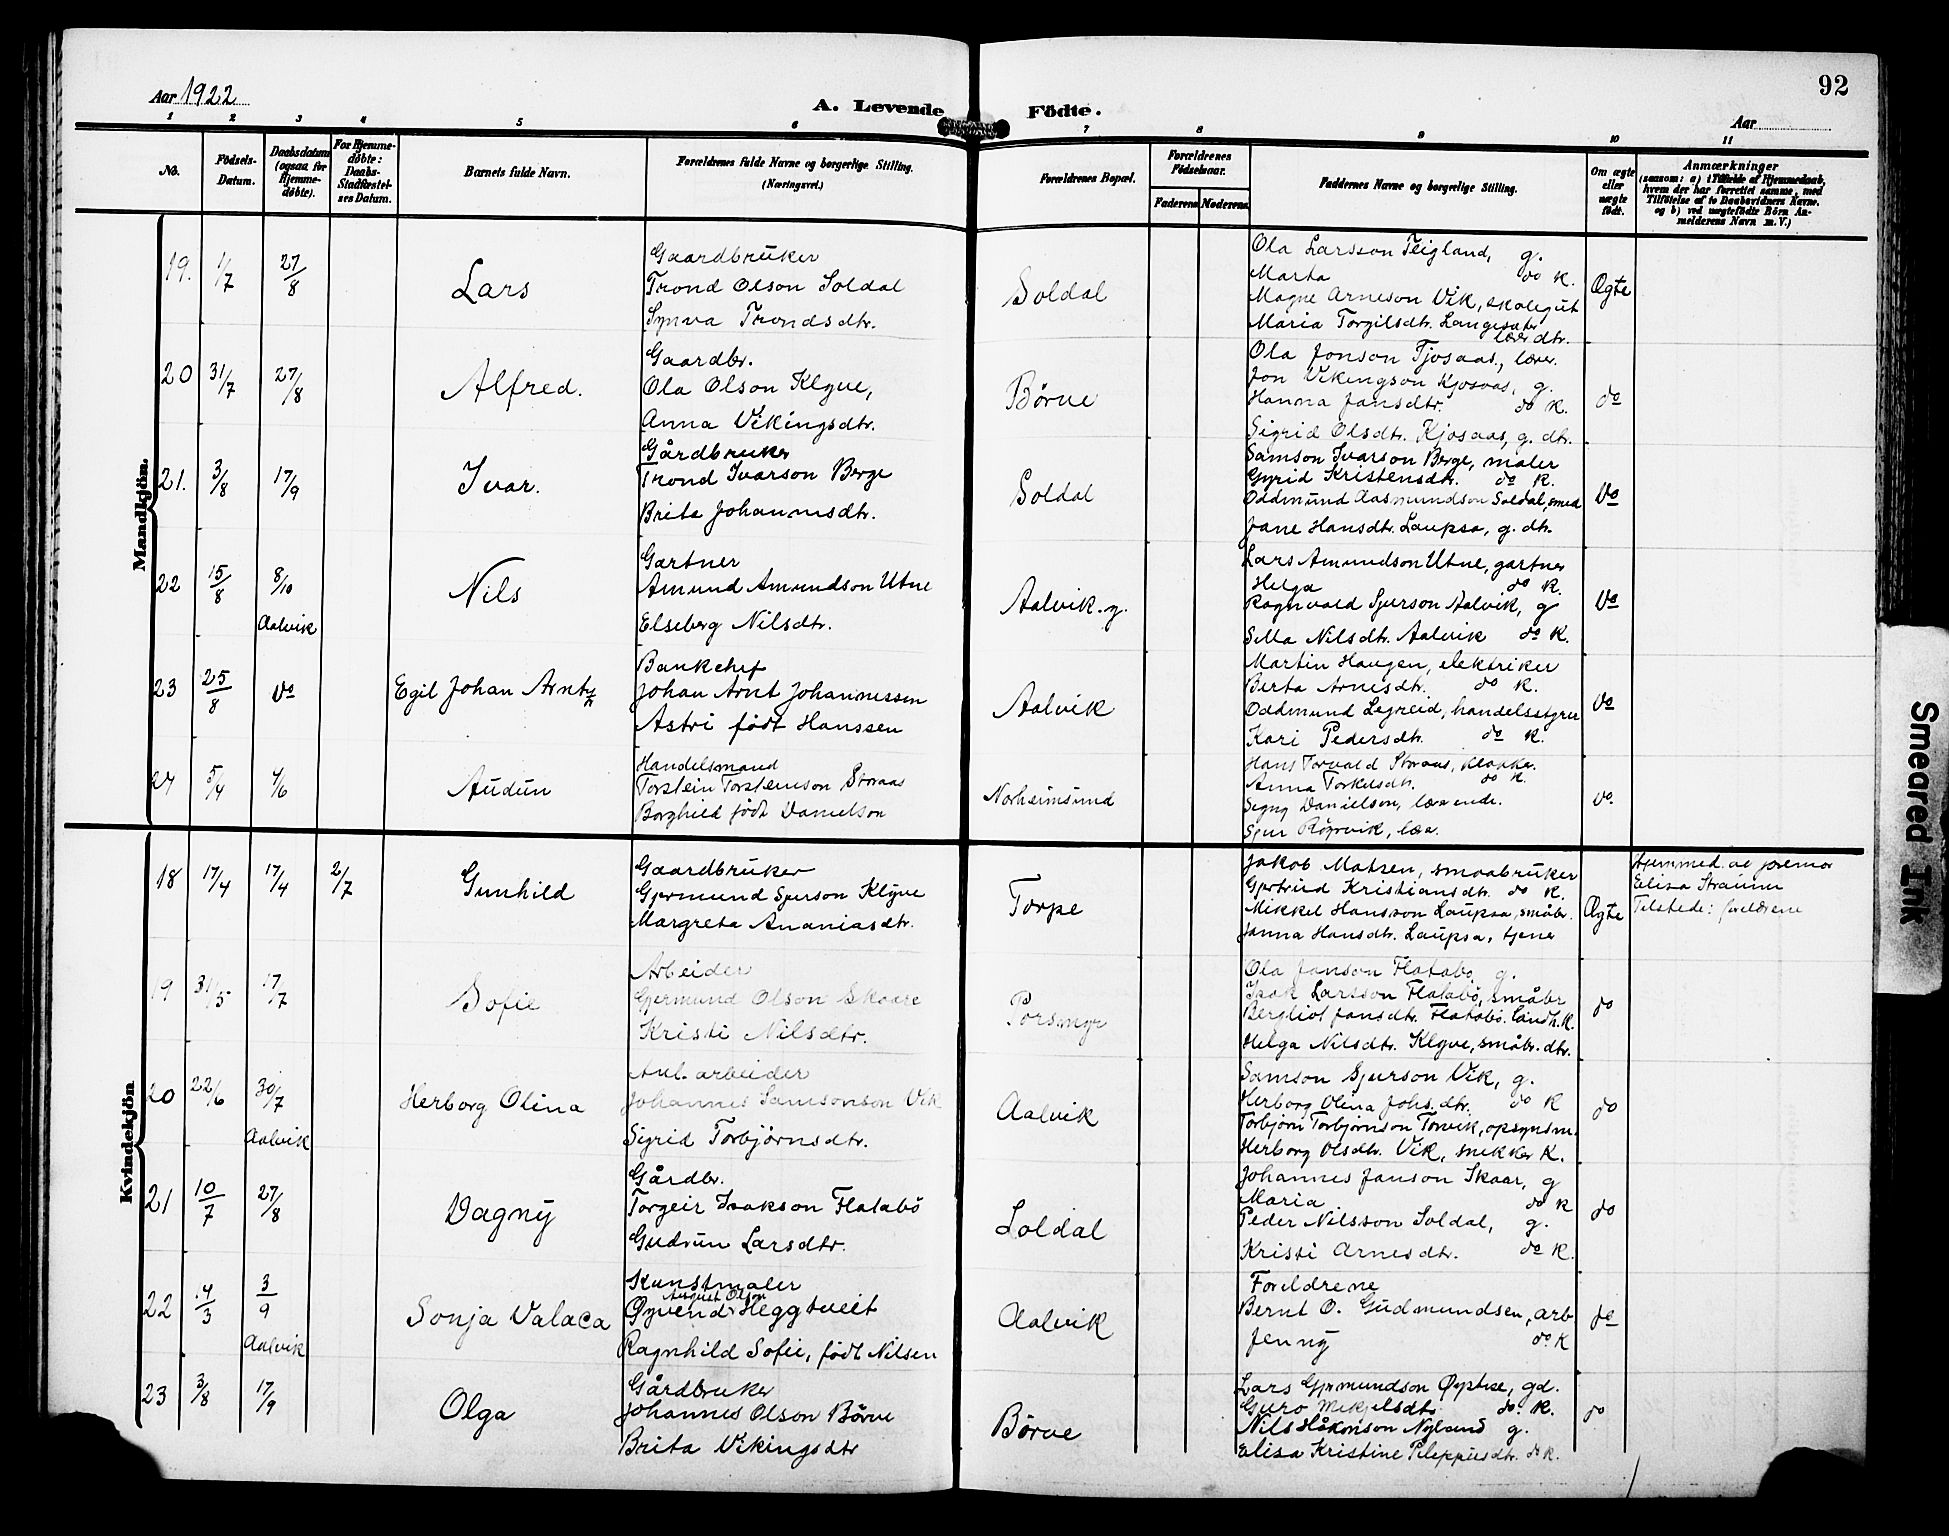 92
Aar 1922
A. Levende Födte.
Aar
1 2 3 4 5 6 7 8 9 10 11
No.
Födsels-Datum.
Daabsdatum (ogsaa for Hjemme-döbte).
For Hjemme-döbte: Daabs-Stadfæstel-ses Datum.
Barnets fulde Navn.
Forældrenes fulde Navne og borgerlige Stilling. (Næringsvei.)
Forældrenes Bopæl.
Forældrenes Födselsaar.
Faderens Moderens
Faddernes Navne og borgerlige Stilling.
Om ægte eller uægte födt.
Anmærkninger
(saasom: a) i Tilfælde af Hjemmedaab,
hvem der har forrettet samme, med
Tilföielse af to Daabsvidners Navne.
og b) ved uægtefödte Börn An-
melderens Navn m. V.)
Mandkjön.
19. 1/7 27/8 Lars
Gaardbruker
Trond Olson Soldal
Synva Trondsdtr.
Soldal
Ola Larsson Teigland, g.
Marta do K.
Magne Arneson Vik, skolegut
Maria Torgilsdtr. Langesæter
lærerdtr.
Ægte
20 31/7 27/8 Alfred.
Gaardbr.
Ola Olson Klyve,
Anna Vikingsdtr.
Børve
Ola Jonson Tjosaas, lærer.
Jon Vikingson Kjosaas, g.
Hanna Jansdtr. do K.
Sigrid Olsdtr. Kjosaas, g. dtr.
do
21. 3/8 17/9 Ivar.
Gårdbruker
Trond Ivarson Berge
Brita Johannesdtr.
Soldal
Samson Ivarson Berge, maler
Gyrid Kristensdtr. do K.
Oddmund Aasmundson Soldal, smed
Jane Hansdtr. Laupsa, g. dtr.
do
22 15/8 8/10 Aalvik Nils
Gartner
Amund Amundson Utne
Elseberg Nilsdtr.
Aalvik. g.
Lars Amundson Utne, gartner
Helga do K.
Ragnvald Sjurson Aalvik, g
Sella Nilsdtr. Aalvik do K.
do
23 25/8 do Egil Johan Arnt
Bankchef
Johan Arnt Johannessen
Astri født Hanssen
Aalvik
Martin Haugen, elektriker
Berta Arnesdtr. do K.
Oddmund Legreid, handelsstyrer
Kari Pedersdtr. do K.
do
24 5/4 4/6 Audun
Handelsmand
Torstein Torsteinson Storaas
Borghild født Danielson
Norheimsund
Hans Torvald Storaas, klokker.
Anna Torkelsdtr. do K
Signy Danielson, lærerinde.
Sjur Röyrvik, lær.
do.
Kvindekjön
18 17/4 17/4 2/7 Gunhild
Gaardbruker
Gjermund Sjurson Klyve
Margreta Ananiasdtr.
Torpe
Jakob Matsen, smaabruker
Gjertrud Kristiansdtr. do K.
Mikkel Hansson Laupsa, småbr.
Janna Hansdtr. Laupsa, tjener
Ægte
Hjemmed. av jormor
Elisa Straume
Tilstede: foreldrene
19 31/5 17/7 Sofie
Arbeider
Gjermund Olson Skaare
Kristi Nilsdtr.
Porsmyr
Ola Janson Flatabø, g.
Isak Larsson Flatabø, småbr
Bergliot Jansdtr. Flatabø. landh. K.
Helga Nilsdtr. Klyve, småbr. dtr.
do
20 22/6 30/7 Aalvik Herborg Olina
Anl. arbeider
Johannes Samsonson Vik
Sigrid Torbjørnsdtr.
Aalvik
Samson Sjurson Vik, g.
Herborg Olina Johs. dtr. do K
Torbjørn Torbjørnson Torvik, opsynsm.
Herborg Olsdtr. Vik, snikker K.
do
21 10/7 27/8 Dagny
Gårdbr.
Torgeir Isakson Flatabø
Gudrun Larsdtr.
Soldal
Johannes Janson Skaar, g
Maria do K
Peder Nilsson Soldal, g.
Kristi Arnesdtr. do K.
do
22 4/3 3/9 Aalvik Sonja Valaca
Kunstmaler
August Olson
Øyvend Heggtveit
Ragnhild Sofie, født Nilsen
Aalvik
Foreldrene
Bernt O. Gudmundsen, arb
Jenny do K
do
23 3/8 17/9 Olga
Gårdbruker
Johannes Olson Børve
Brita Vikingsdtr
Børve
Lars Gjermundson Øystese, gd.
Guro Mikjelsdtr do. K.
Nils Håkonson Nyland g.
Elisa Kristine Pileppusdtr. do K.
do
Smeared Ink